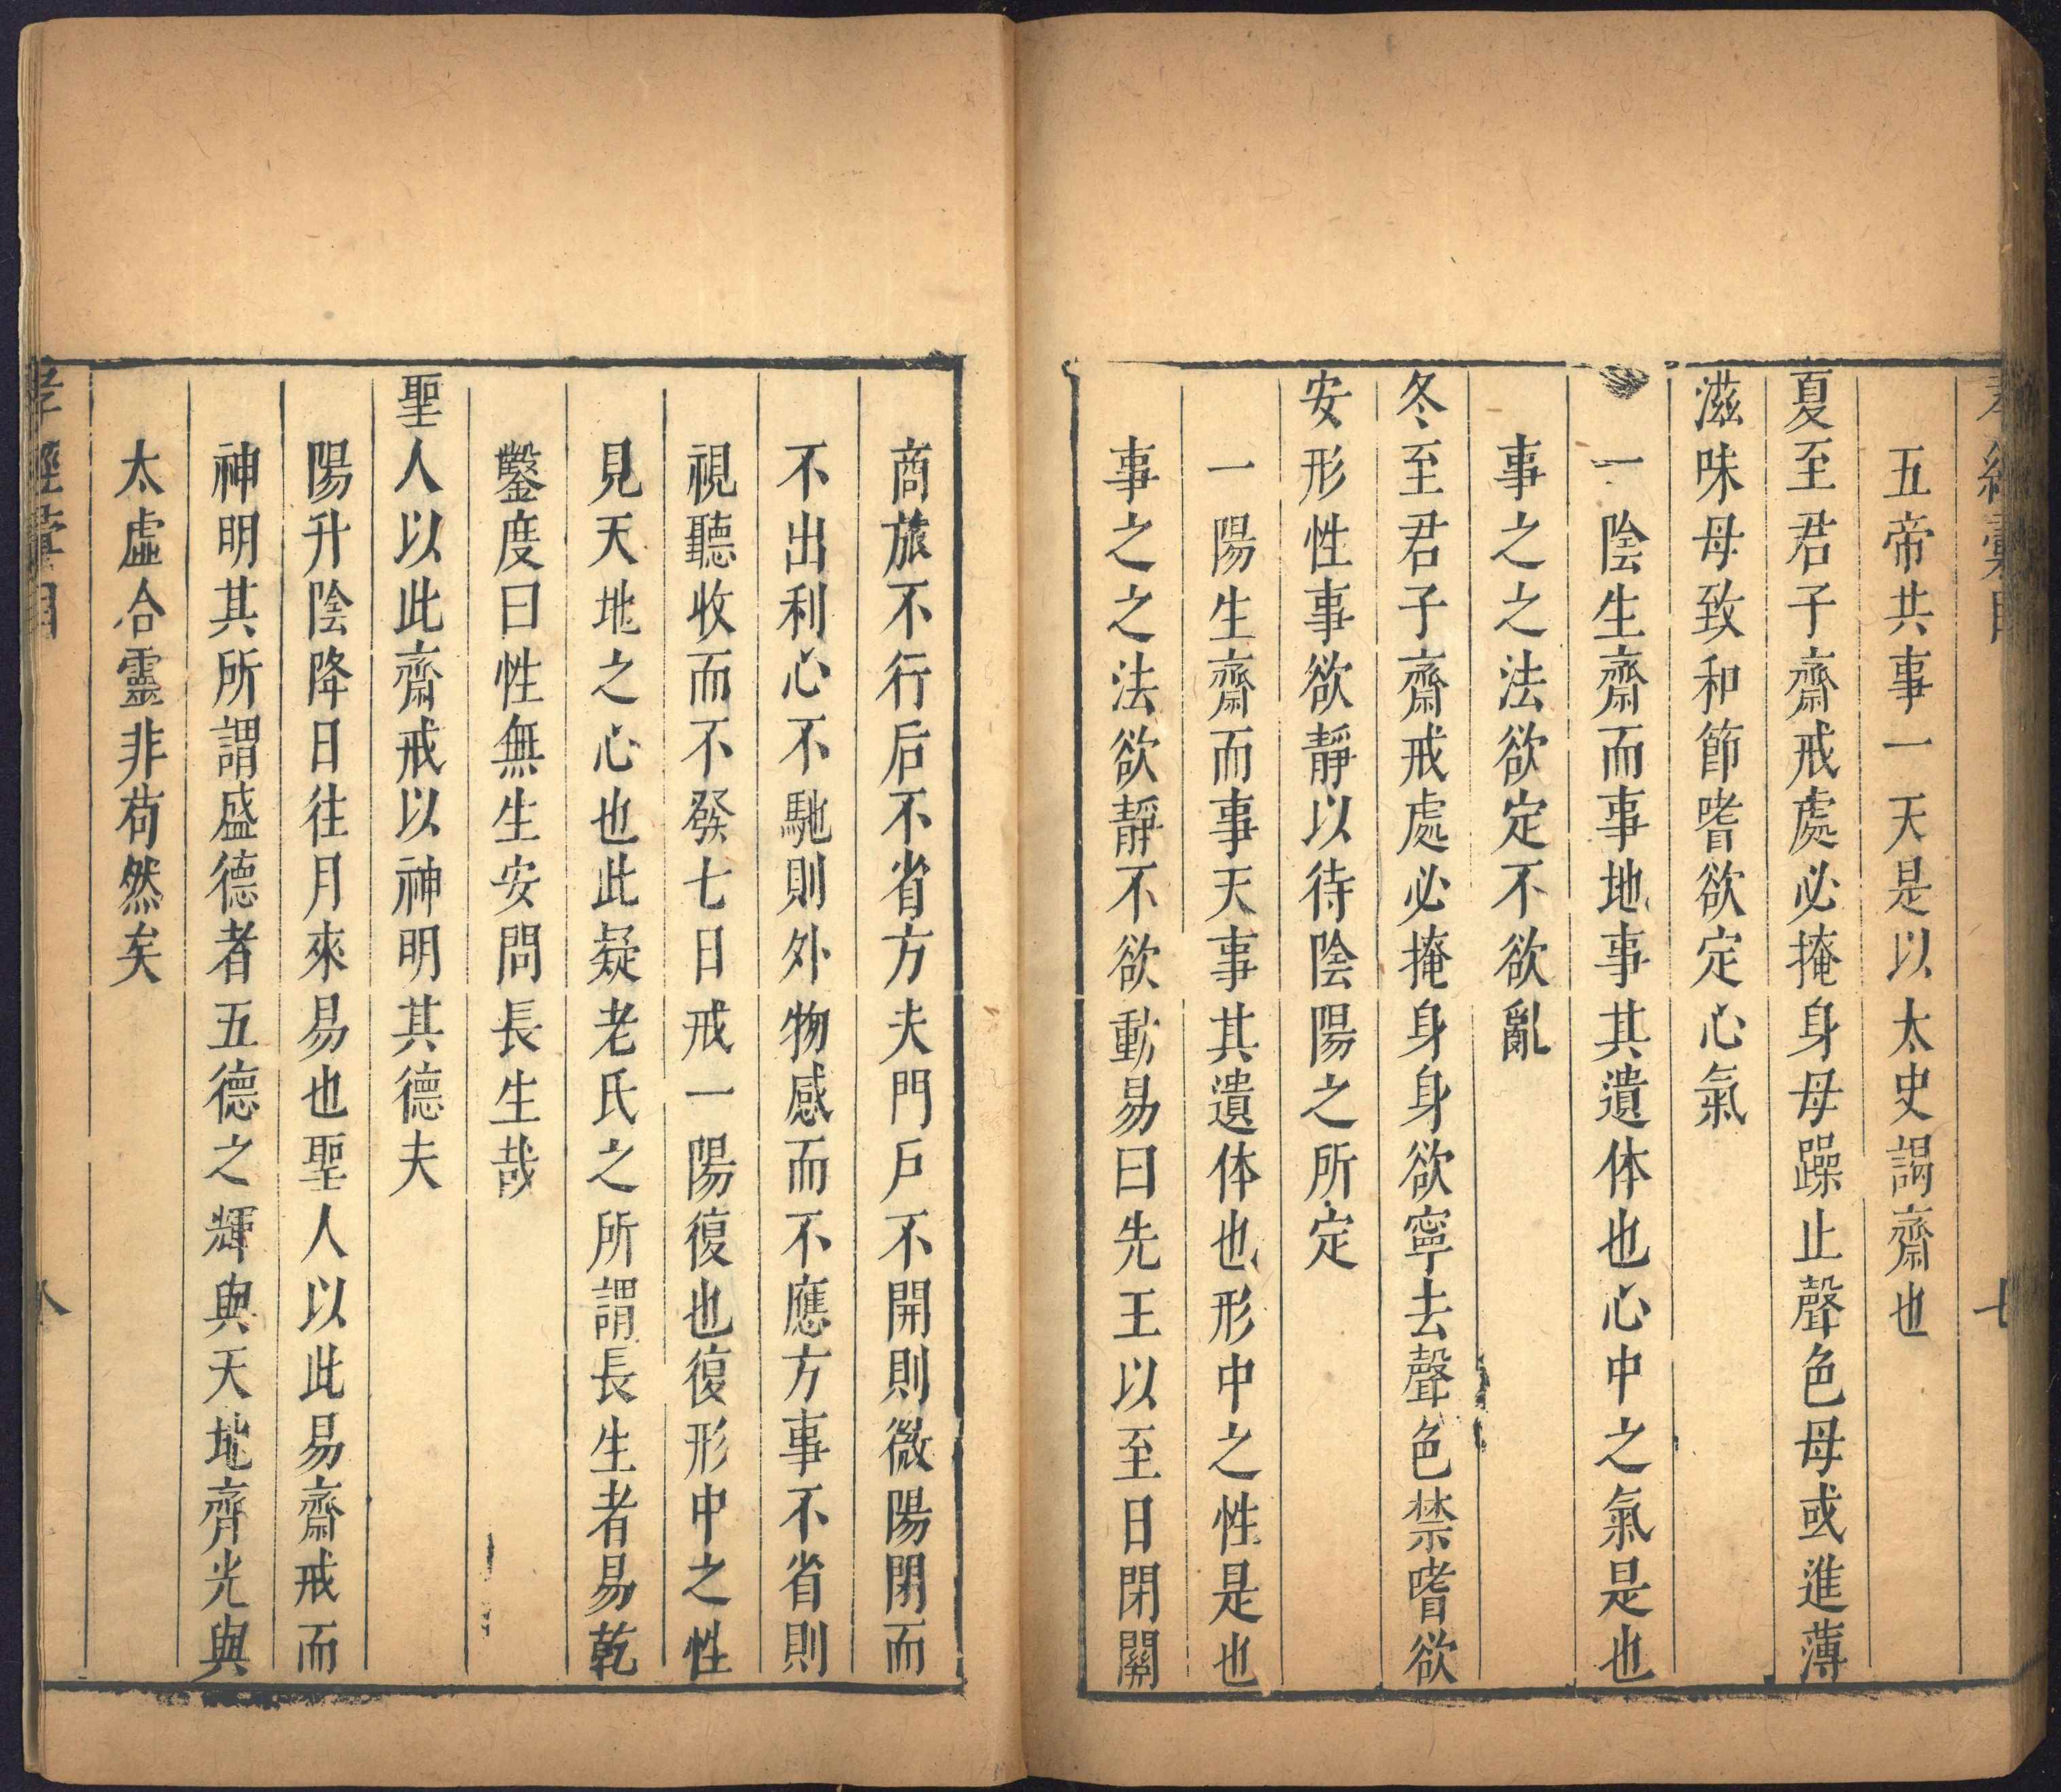 五帝共事一天是以太史謁齋也
夏至君子齋戒處必掩身母躁止聲色母或進薄
滋味母致和節嗜欲定心氣
一陰生齋而事地事其遺体也心中之氣是也
事之之法欲定不欲亂
冬至君子齋戒處必掩身身欲寧去聲色禁嗜欲
安形性事欲靜以待陰陽之所定
一陽生齋而事天事其遺体也形中之性是也
事之之法欲靜不欲動易曰先王以至日閉關
商旅不行后不省方夫門戶不開則微陽閉而
不出利心不馳則外物感而不應方事不省則
視聽收而不發七日戒一陽復也復形中之性
見天地之心也此疑老氏之所謂長生者易乾
鑿度曰性無生安問長生哉
聖人以此齋戒以神明其德夫
陽升陰降日往月來易也聖人以此易齋戒而
神明其所謂盛德者五德之輝與天地齊光與
太虛合靈非苟然矣
八